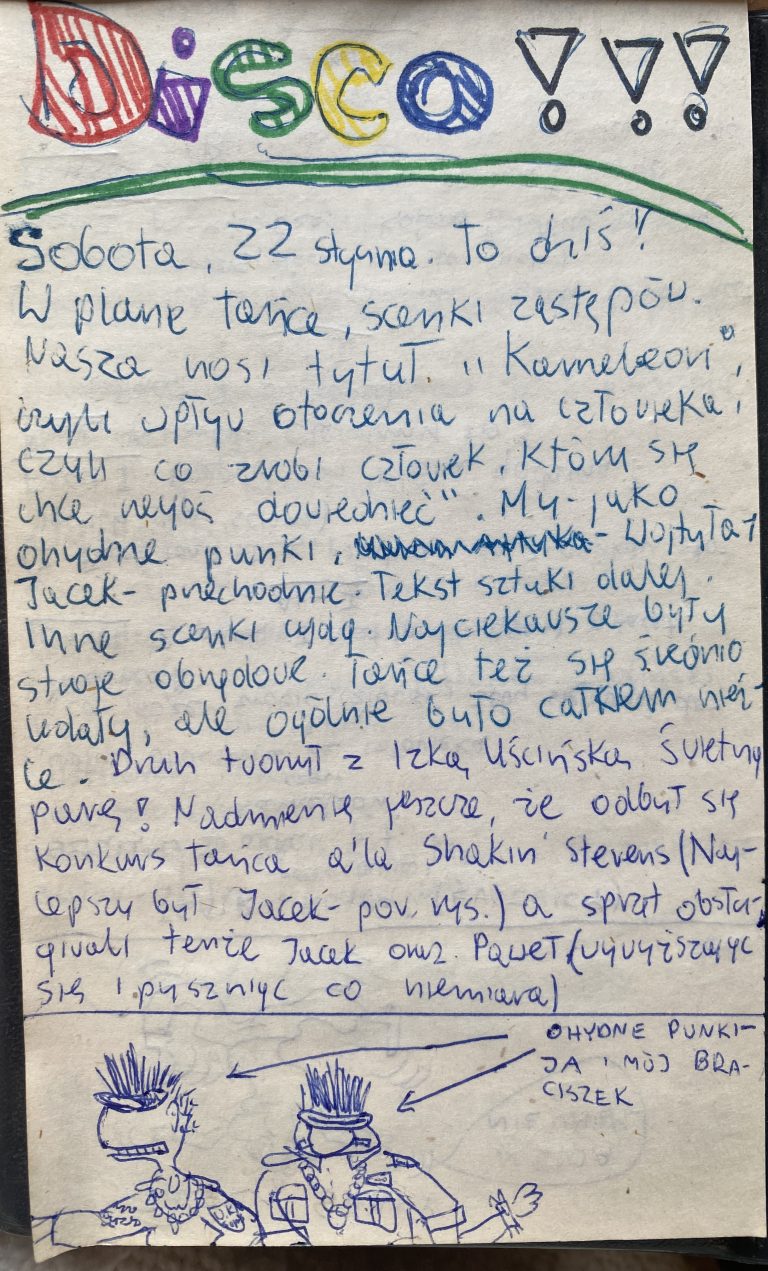 Disco!!!
Sobota, 22 stycznia. To dziś!!
W planie tańce, scenki zastępów.
Nasza nosi tytuł "Kameleon",
czyli wpływ otoczenia na człowieka,
czyli co zrobi człowiek, który się
chce czegoś dowiedzieć". My-jako
ohydne punki, - Wojtyła i
Jacek- przechodnie. Tekst sztuki dalej.
Inne scenki ujdą. Najciekawsze były
stroje obrzędowe. Tańce też się średnio
udały, ale ogólnie było całkiem nieź-
le. Druh tworzył z Izką Uścińską świetną
parę! Nadmienię jeszcze, że odbył się
konkurs tańca a'la Shakin' Stevens (Naj-
lepszy był Jacek- pow. rys.) a sprzęt obsłu-
giwali tenże Jacek oraz Paweł (wywyższając
się i pyszniąc co niemiara)
OHYDNE PUNKI-
JA I MÓJ BRA-
CISZEK